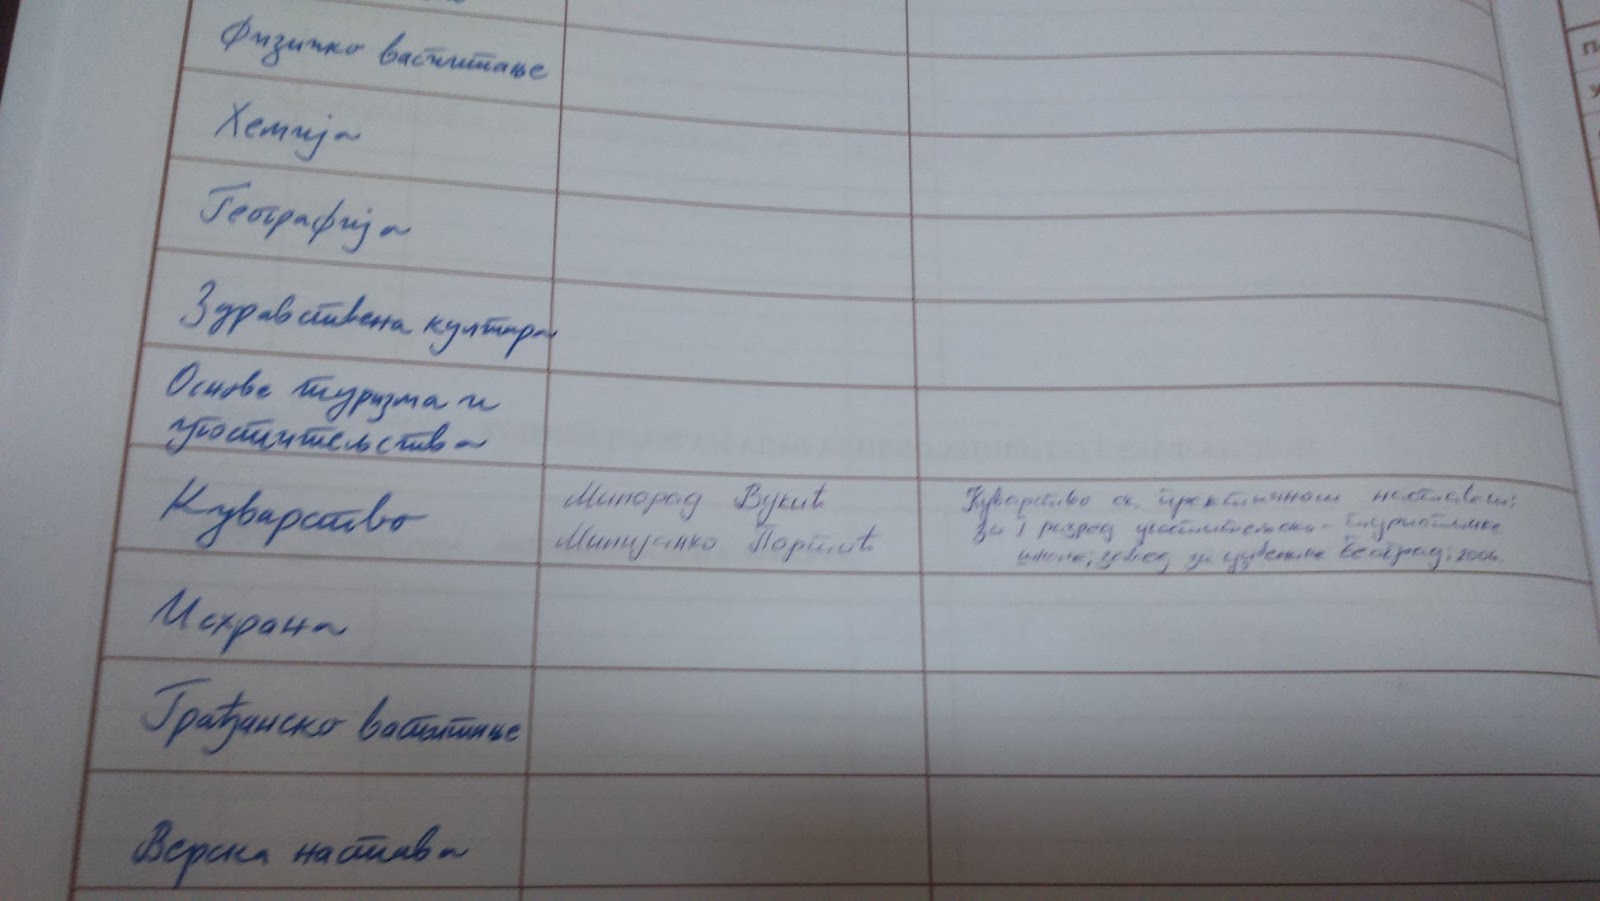 Физичко васпитање
Хемија
Географија
Здравствена култура
Основе туризма и
угоститељства
Куварство
Милорад Вукић
Милијанко Портић
Куварство са практичном наставом:
за I разред угоститељско-туристичке
школе, завод за уџбенике Београд; 2004.
Исхрана
Грађанско васпитање
Верска настава